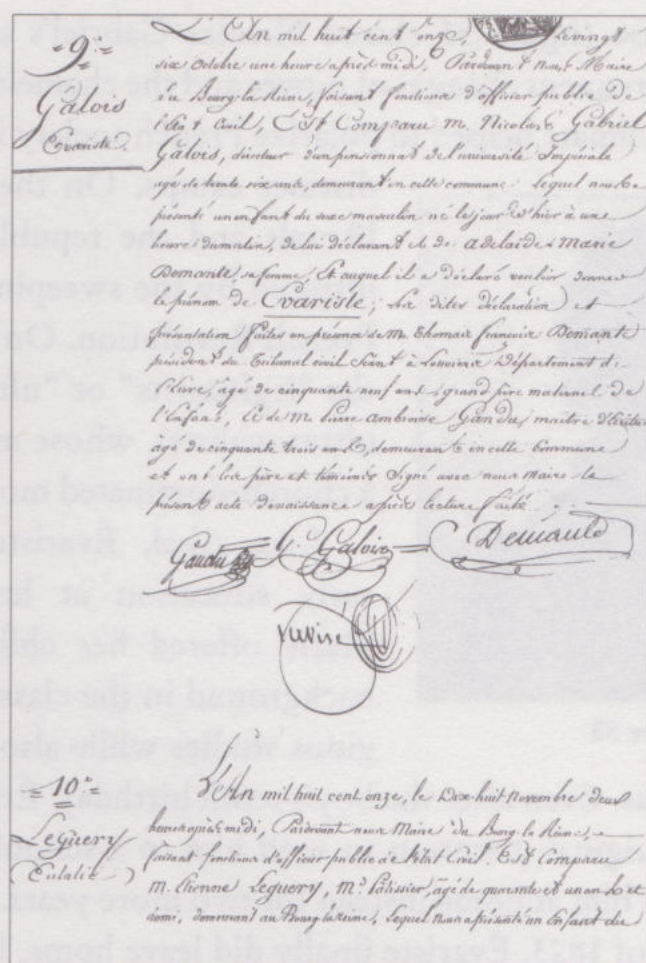 9.e
Galois
Evariste
L'An mil huit cent onze, le vingt
six Octobre une heure après midi. Pardevant nous Maire
du Bourg-la-Reine, faisant fonctions d'officier public de
l'état Civil, Est Comparu M. Nicolas Gabriel
Galois, directeur d'un pensionnat de l'université Impériale
agé de trente six ans, demeurant en cette commune lequel nous a
présenté un enfant du sexe masculin né le jour d'hier à une
heure du matin, de lui déclarant et de adelaïde Marie
Demante sa femme, Et auquel il a déclaré vouloir donner
le prénom de Evariste; les dites déclaration et
présentation faites en présence de M. Thomas françois Demante
président du Tribunal civil Séant à Louviers Département de
l'Eure, agé de cinquante neuf ans, grand père maternel de
l'Enfant, et de M. Pierre ambroise Gandu, maitre d'écriture
agé de cinquante trois ans, demeurant en cette Commune
et ont les père et témoins Signé avec nous Maire le
présent acte de naissance après lecture faite.
Gandu G. Galois Demante
10.e
Leguery
Eulalie
L'An mil huit cent onze, le Dix-huit Novembre deux
heures après midi, Pardevant nous Maire du Bourg-la-Reine,
faisant fonctions d'officier public de l'état Civil. Est Comparu
M. Etienne Leguery, M.d Patissier, agé de quarante et un ans et
demi, demeurant au Bourg-la-reine, lequel nous a présenté un Enfant du